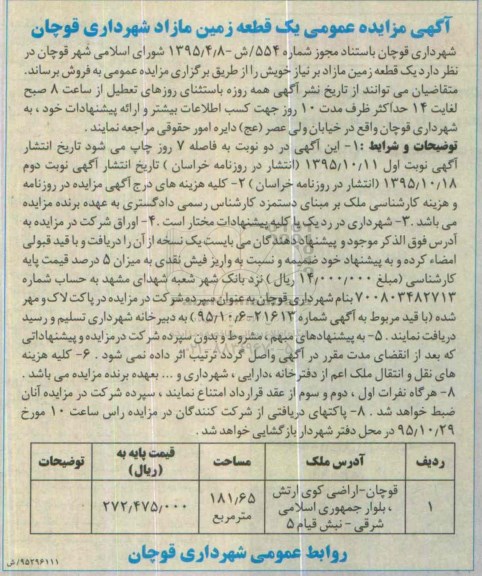 آگهی مزایده عمومی یک قطعه زمین مازاد شهرداری قوچان
شهرداری قوچان باستناد مجوز شماره ۵۵۴/ش -۱۳۹۵/۴/۸ شورای اسلامی شهر قوچان در
نظر دارد یک قطعه زمین مازاد بر نیاز خویش را از طریق برگزاری مزایده عمومی به فروش برساند.
متقاضیان می توانند از تاریخ نشر آگهی همه روزه باستثنای روزهای تعطیل از ساعت ۸ صبح
لغایت ۱۴ حداکثر ظرف مدت ۱۰ روز جهت کسب اطلاعات بیشتر و ارائه پیشنهادات خود ، به
شهرداری قوچان واقع در خیابان ولی عصر (عج) دایره امور حقوقی مراجعه نمایند .
توضیحات و شرایط :۱- این آگهی در دو نوبت به فاصله ۷ روز چاپ می شود تاریخ انتشار
آگهی نوبت اول ۱۳۹۵/۱۰/۱۱ (انتشار در روزنامه خراسان ) تاریخ انتشار آگهی نوبت دوم
۱۳۹۵/۱۰/۱۸ (انتشار در روزنامه خراسان ) ۲- کلیه هزینه های درج آگهی مزایده در روزنامه
و هزینه کارشناسی ملک بر مبنای دستمزد کارشناس رسمی دادگستری به عهده برنده مزایده
می باشد .۳- شهرداری در رد یک یا کلیه پیشنهادات مختار است .۴- اوراق شرکت در مزایده به
آدرس فوق الذکر موجود و پیشنهاد دهندگان می بایست یک نسخه از آن را دریافت و با قید قبولی
امضاء کرده و به پیشنهاد خود ضمیمه و نسبت به واریز فیش نقدی به میزان ۵ درصد قیمت پایه
کارشناسی (مبلغ ۱۴٫۰۰۰٫۰۰۰ ریال ) نزد بانک شهر شعبه شهدای مشهد به حساب شماره
۷۰۰۸۰۳۴۸۲۷۱۳ بنام شهرداری قوچان به عنوان سپرده شرکت در مزایده در پاکت لاک و مهر
شده (با قید مربوط به آگهی شماره ۲۱۶۱۳-۹۵/۱۰/۶ ) به دبیرخانه شهرداری تسلیم و رسید
دریافت نمایند . ۵- به پیشنهادهای مبهم ، مشروط و بدون سپرده شرکت در مزایده و پیشنهاداتی
که بعد از انقضای مدت مقرر در آگهی واصل گردد ترتیب اثر داده نمی شود . ۶- کلیه هزینه
های نقل و انتقال ملک اعم از دفترخانه ،دارایی ، شهرداری و ... بعهده برنده مزایده می باشد .
۸- هرگاه نفرات اول ، دوم و سوم از عقد قرارداد امتناع نمایند ، سپرده شرکت در مزایده آنان
ضبط خواهد شد . ۸- پاکتهای دریافتی از شرکت کنندگان در مزایده راس ساعت ۱۰ مورخ
۹۵/۱۰/۲۹ در محل دفتر شهردار بازگشایی خواهد شد .
ردیف آدرس ملک مساحت قیمت پایه به (ریال) توضیحات
۱ قوچان-اراضی کوی ارتش ، بلوار جمهوری اسلامی شرقی - نبش قیام ۵ ۱۸۱/۶۵ مترمربع ۲۷۲٫۴۷۵٫۰۰۰
روابط عمومی شهرداری قوچان
۹۵۲۹۶۱۱۱/ش